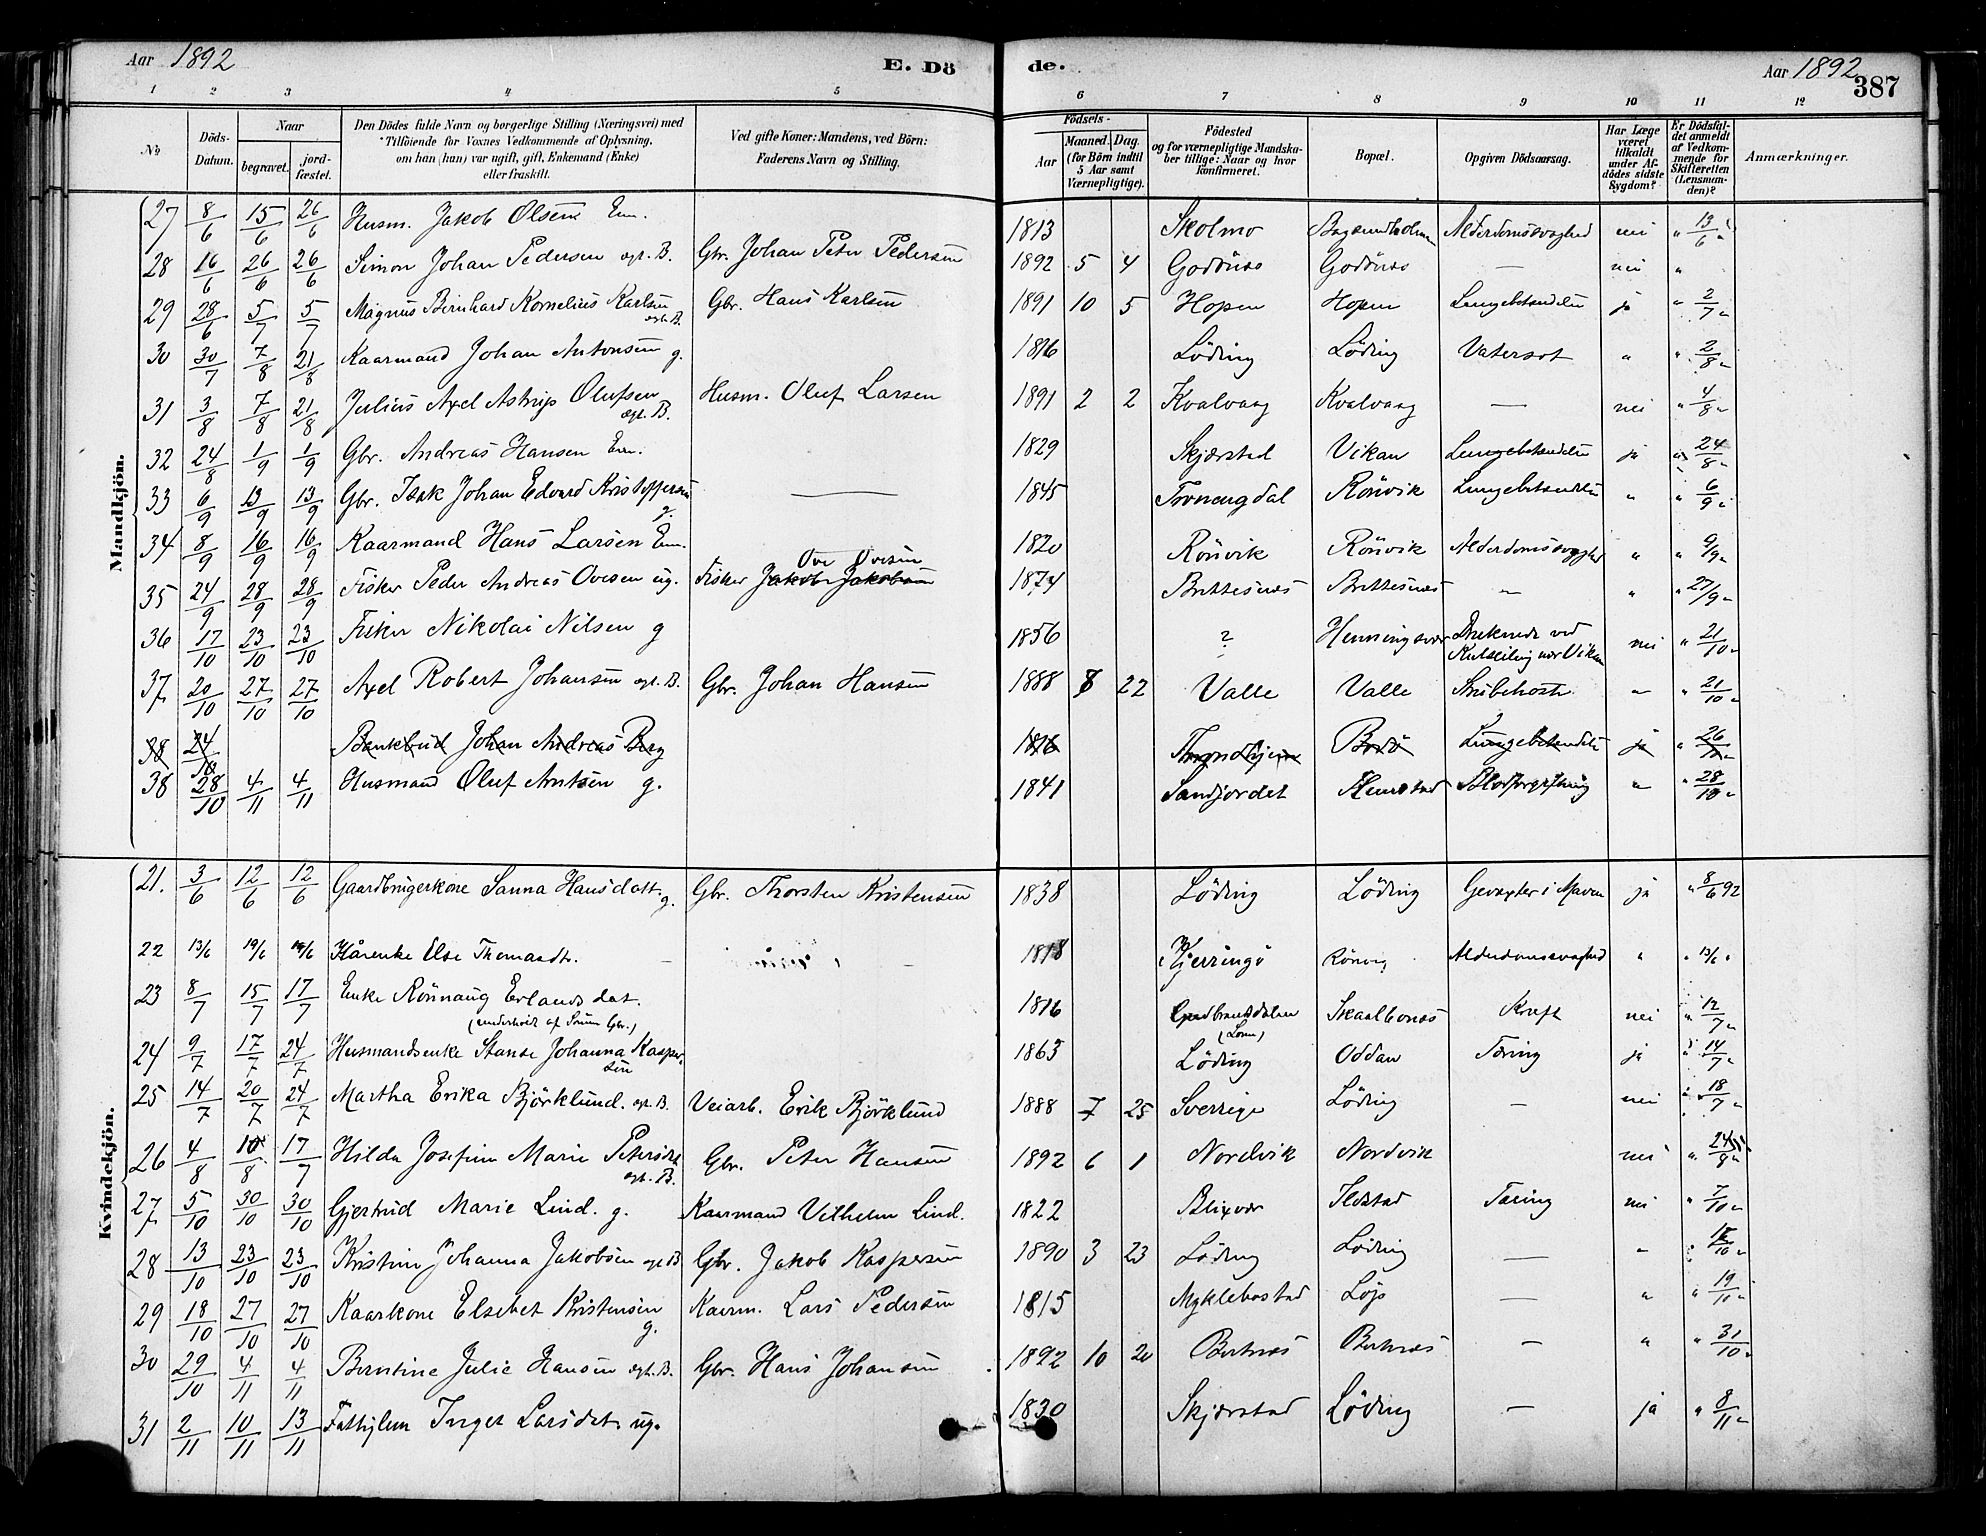 Aar 1892
E. Dö de.
Aar 1892
387
1 2 3 4 5 6 7 8 9 10 11 12
No
Döds-Datum.
Naar begravet. jordfæstet.
Den Dödes fulde Navn og borgerlige Stilling (Næringsvei) med Tilföiende for Voxnes Vedkommende af Oplysning, om han (hun) var ugift, gift, Enkemand (Enke) eller fraskilt.
Ved gifte Koner: Mandens, ved Börn: Faderens Navn og Stilling.
Födsels- Aar Maaned. Dag. (for Börn indtil 5 Aar samt Værnepligtige).
Födested og for værnepligtige Mandskaber tillige: Naar og hvor konfirmeret.
Bopæl.
Opgiven Dödsaarsag.
Har Læge været tilkaldt under Afdödes sidste Sygdom?
Er Dödsfaldet anmeldt af Vedkommende for Skifteretten (Lensmanden)?
Anmærkninger.
Mandkjön.
27 8/6 15/6 26/6 Husm. Jakob Olsen Em. 1813 Skolmo Alderdomssvaghed nei " 13/6 "
28 16/6 26/6 26/6 Simon Johan Pedersen egt. B. Gbr. Johan Peter Pedersen 1892 5 4 Godönes Godönes — nei "
29 28/6 5/7 5/7 Magnus Bernhard Kornelius Karlsen egt. B. Gbr. Hans Karlsen 1891 10 5 Hopen Hopen Lungebetændelse ja " 2/7 "
30 30/7 7/8 21/8 Kaarmand Johan Antonsen g. 1816 Löding Löding Vatersot " " 2/8 "
31 3/8 7/8 21/8 Julius Axel Astrup Olufsen egt. B. Husm. Oluf Larsen 1891 2 2 Kvalvaag Kvalvaag — nei " 4/8 "
32 24/8 1/9 1/9 Gbr. Andreas Hansen Em. 1829 Skjerstad Vikan Lungebetændelse ja " 24/8 "
33 6/9 13/9 13/9 Gbr. Isak Johan Edvard Kristoffersen g. — 1845 Rönvik Lungebetændelse " " 6/9 "
34 8/9 16/9 16/9 Kaarmand Hans Larsen Em. 1820 Rönvik Rönvik Alderdomssvaghed " " 9/9 "
35 24/9 28/9 28/9 Fisker Peder Andreas Ovesen ug. Fisker Jakob Jakobsen Ove Ovesen 1874 Brettesnes Brettesnes — " " 27/9 "
36 17/10 23/10 23/10 Fisker Nikolai Nilsen g 1856 ? Henningsvær Druknede ved Kulseiling nær Vikan nei " 21/10 "
37 20/10 27/10 27/10 Axel Robert Johansen egt. B. Gbr. Johan Hansen 1888 8 22 Valle Valle Strubehoste " " 21/10 "
38 24/10 Bankbud Johan Andreas Berg 1816 Throndhjem Bodö Lungebetændelse ja " 26/10 "
38 28/10 4/11 4/11 Husmand Oluf Arntsen g. 1841 Sandjordet Blodforgiftning " " 28/10 "
Kvindekjön.
21. 3/6 12/6 12/6 Gaardbrugerkone Sanna Hansdatt. g. Gbr. Thorsten Kristensen 1838 Löding Löding Gevæxter i Maven ja " 8/6 92
22 13/6 19/6 19/6 Kårenke Else Thomasdt. — — 1818 Kjerringö Rönvig Alderdomssvaghed " " 13/6 "
23 8/7 15/7 17/7 Enke Rönnaug Erlandsdat. (underholdt af Gbr.) 1816 Gudbrandsdalen (Lom) Skaalbones Kræft nei " 12/7 "
24 9/7 17/7 24/7 Husmandsenke Stanse Johanna Kaspersen 1863 Löding Oddan Tæring ja " 14/7 "
25 14/7 20/7 24/7 Martha Erika Björklund egt. B. Veiarb. Erik Björklund 1888 7 25 Sverrige Löding — nei " 18/7 "
26 4/8 10/8 17/7 Hilda Josefine Marie Petersen egt. B. Gbr. Peter Hansen 1892 6 1 Nordvik Nordvik nei " 24/8 "
27 5/10 30/10 30/10 Gjertrud Marie Lind. g. Kaarmand Vilhelm Lind. 1822 Blixvær Ilstad Tæring nei " 7/10 "
28 13/10 23/10 23/10 Kristine Johanna Jakobsen egt B Gbr. Jakob Kaspersen 1890 3 23 Löding Löding — "
29 18/10 27/10 27/10 Kaarkone Elsebet Kristensen g. Kaarm. Lars Pedersen 1815 Myklebostad Löp — " " 19/11 "
30 29/10 4/11 4/11 Berntine Julie Hansen egt. B. Gbr. Hans Johansen 1892 10 20 Bertnes Bertnes — " " 31/10 "
31 2/11 10/11 13/11 Fattiglem Inger Larsdat. ug. 1830 Skjerstad Löding — ja " 8/11 "